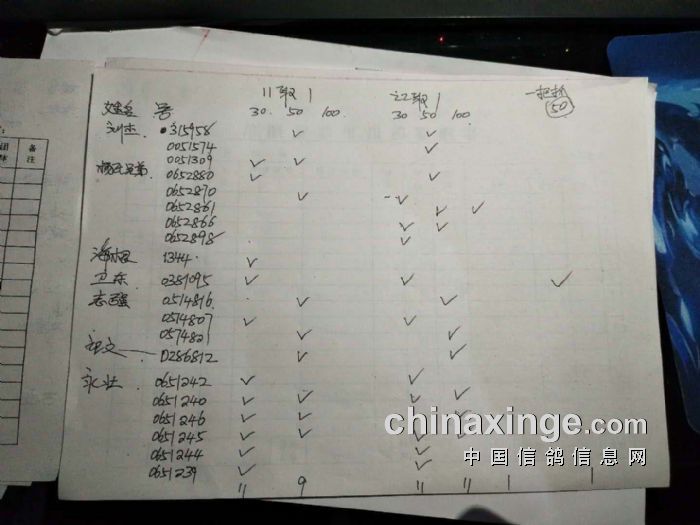 11取1 22取1 一把抓
姓名 号 30. 50 100. 30 50 100 50
刘杰. 315958 ✓ ✓
0051574 ✓
0051309 ✓ ✓
兄弟. 0652880 ✓ ✓
0652870 ✓ ✓
0652861 ✓ ✓
0652866 ✓ ✓
0652898 ✓
1344 ✓
卫东 0381095 ✓ ✓ ✓
志强 0514816 ✓ ✓
0574807 ✓ ✓
0574821 ✓ ✓
0286812 ✓ ✓
永壮 0651242 ✓ ✓
0651240 ✓ ✓ ✓ ✓
0651246 ✓ ✓ ✓ ✓
0651245 ✓ ✓ ✓ ✓
0651244 ✓ ✓
0651239 ✓ ✓
11 9 11 11 1 1
备注
chinaxinge.com
中国信鸽信息网